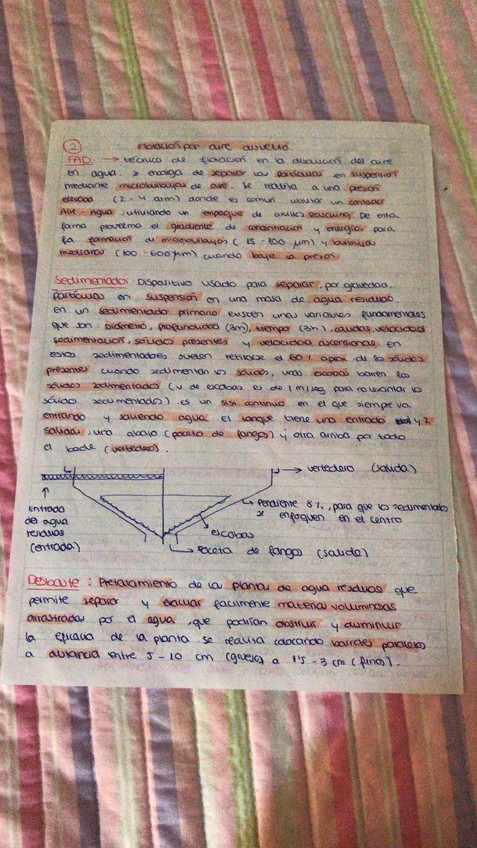 ② Flotación por aire disuelto.
FAD → técnica de flotación en la disolución del aire
en agua. se encarga de separar las partículas en suspensión
mediante microburbujas de aire. Se realiza a una presión
elevada (2 - 4 atm) donde es común utilizar un contactor
Aire - Agua, utilizando un empaque de anillos Rasching. De esta
forma provocamos el gradiente de concentración y energía para
la formación de microburbujas (15 - 100 µm) y burbujas
medianas (100 - 600 µm) cuando baje la presión.
Sedimentador: Dispositivo usado para separar, por gravedad,
partículas en suspensión en una masa de agua residual.
en un sedimentador primario existen unas variables fundamentales
que son: diámetro, profundidad (3m), tiempo (3h), caudales, velocidad
sedimentación, sólidos presentes y velocidad ascensional en
estos sedimentadores suelen retirarse el 60% aprox de los sólidos
presentes cuando sedimentan los sólidos, unas escobas barren los
sólidos sedimentados (v de escobas es de 1 m/seg, para no levantar los
sólidos sedimentados) es un sist. continuo en el que siempre va
entrando y saliendo agua. el tanque tiene una entrada y 2
salidas; una abajo (poceta de fangos) y otra arriba por todo
el borde (vertedero).
→ vertedero (salida)
Entrada
de agua
residual
(entrada)
→ Pendiente 8%, para que los sedimentados
se enfoquen en el centro
→ escobas
→ poceta de fangos (salida)
Desbaste: Pretratamiento de las plantas de agua residual que
permite separar y evacuar fácilmente materias voluminosas
arrastradas por el agua, que podrían obstruir y disminuir
la eficacia de la planta. se realiza colocando barrotes paralelos
a distancia entre 5 - 10 cm (gruesos) a 1'5 - 3 cm (finos).